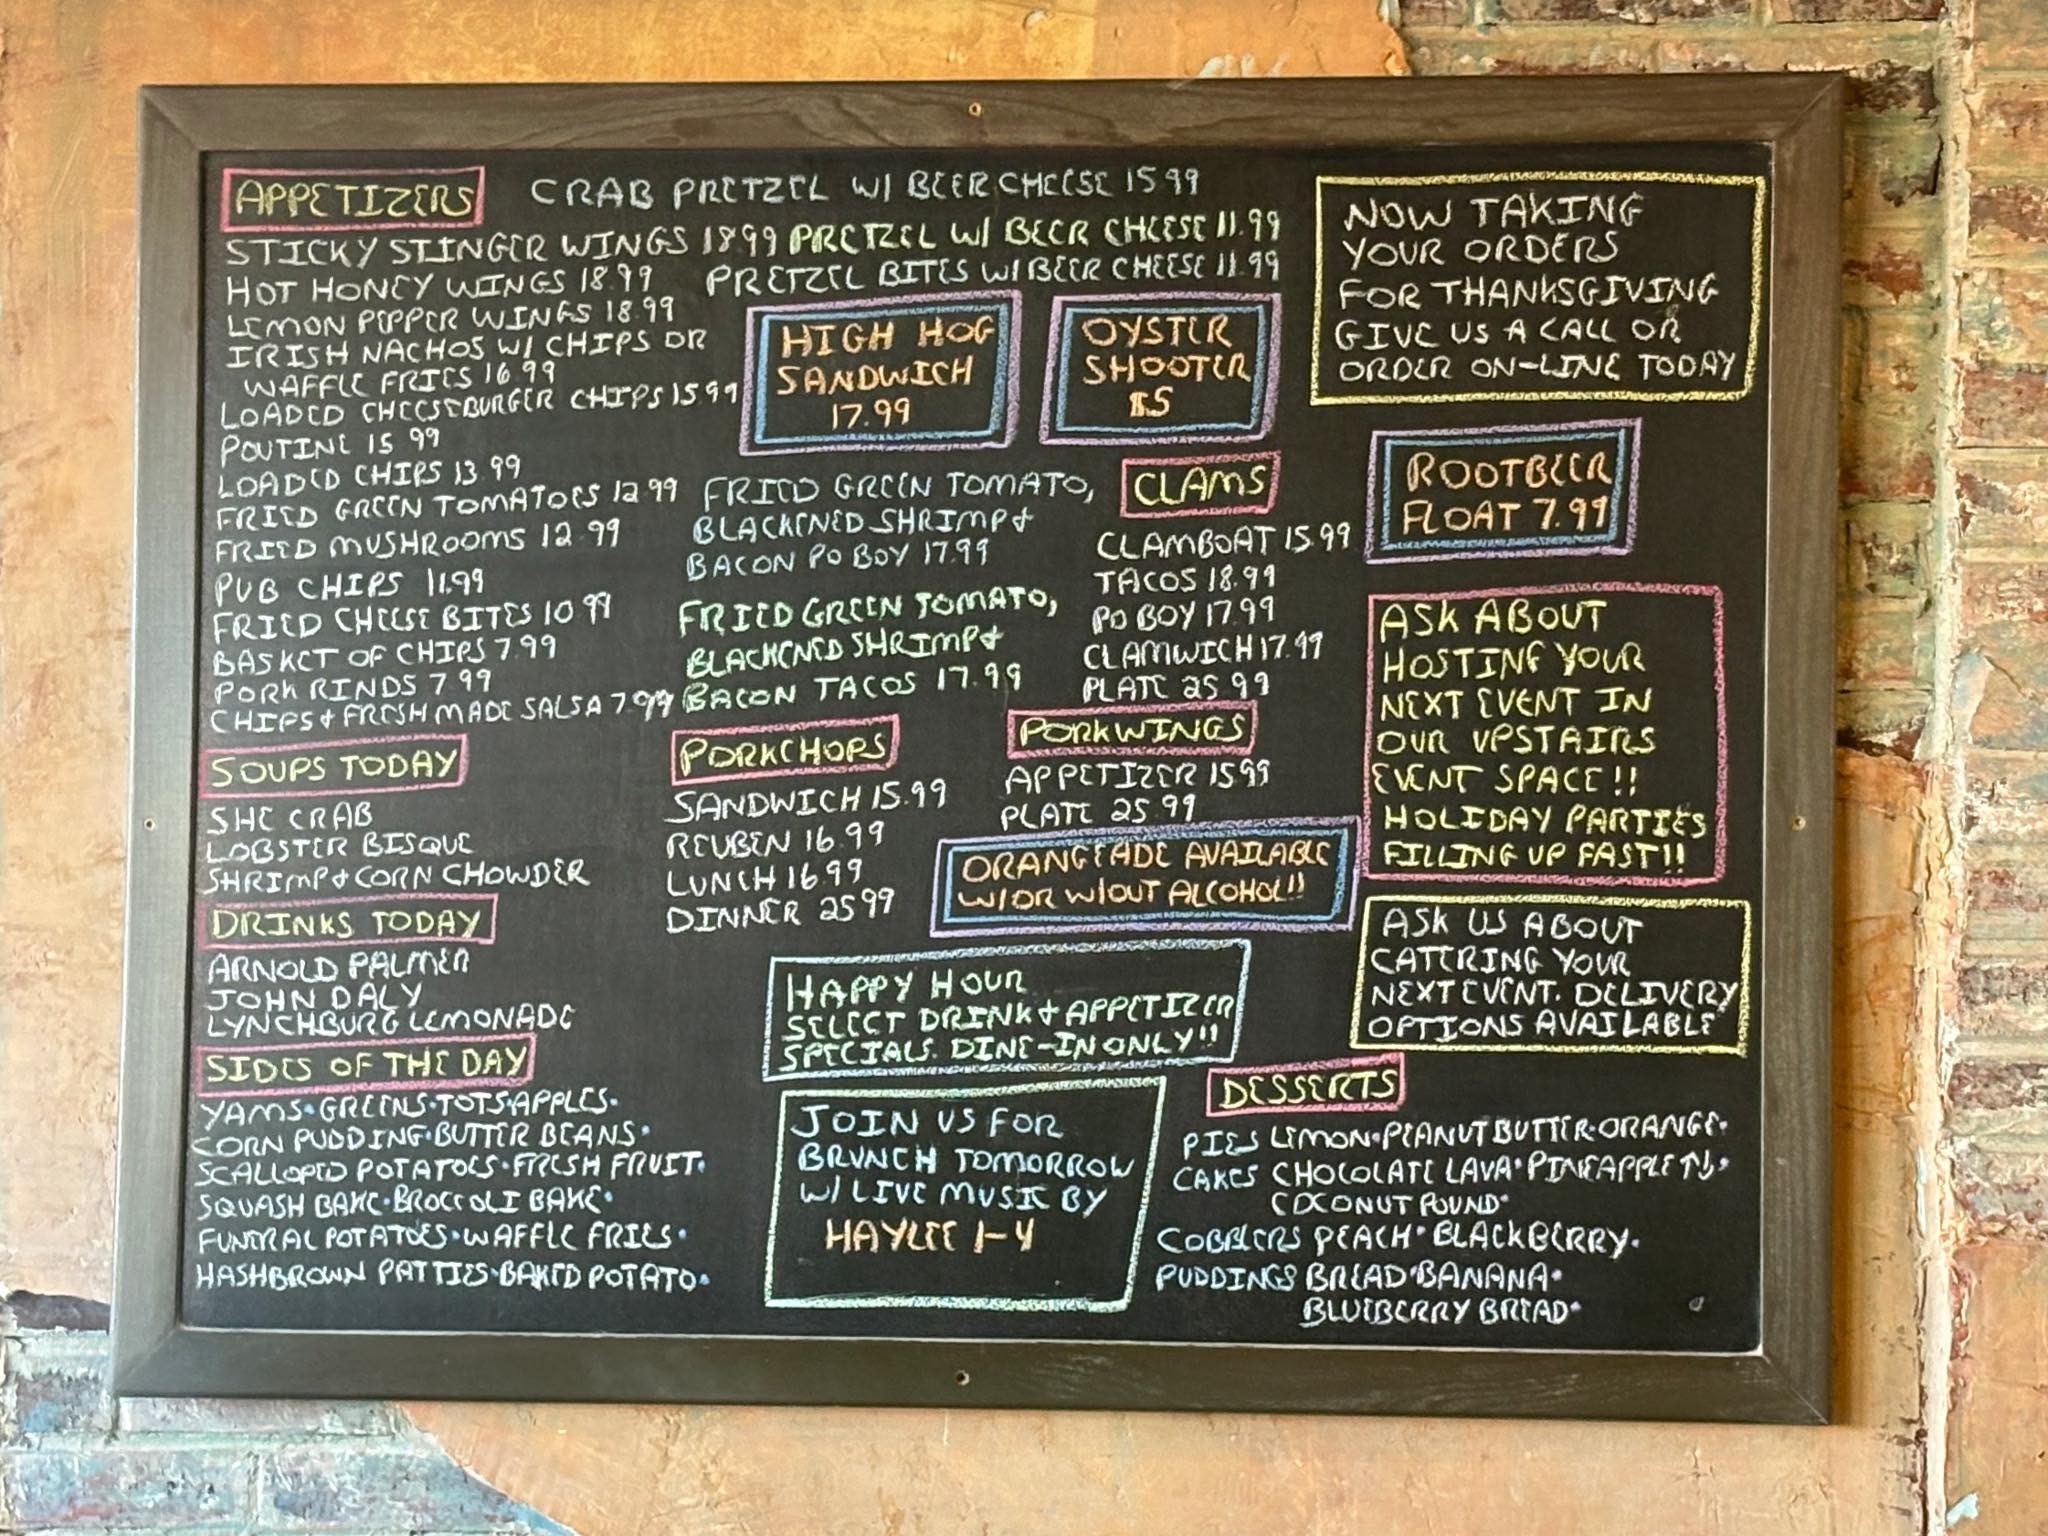 APPETIZERS
CRAB PRETZEL W/ BEER CHEESE 15 99
STICKY STINGER WINGS 18.99
PRETZEL W/ BEER CHEESE 11.99
HOT HONEY WINGS 18.99
PRETZEL BITES W/ BEER CHEESE 11.99
LEMON PEPPER WINGS 18.99
IRISH NACHOS W/ CHIPS OR
WAFFLE FRIES 16 99
LOADED CHEESEBURGER CHIPS 15 99
POUTINE 15 99
LOADED CHIPS 13.99
FRIED GREEN TOMATOES 12 99
FRIED MUSHROOMS 12.99
PUB CHIPS 11.99
FRIED CHEESE BITES 10 99
BASKET OF CHIPS 7.99
PORK RINDS 7 99
CHIPS & FRESH MADE SALSA 7.99
SOUPS TODAY
SHE CRAB
LOBSTER BISQUE
SHRIMP & CORN CHOWDER
DRINKS TODAY
ARNOLD PALMER
JOHN DALY
LYNCHBURG LEMONADE
SIDES OF THE DAY
YAMS • GREENS • TOTS • APPLES •
CORN PUDDING • BUTTER BEANS •
SCALLOPED POTATOES • FRESH FRUIT •
SQUASH BAKE • BROCCOLI BAKE •
FUNERAL POTATOES • WAFFLE FRIES •
HASHBROWN PATTIES • BAKED POTATO •
HIGH HOG
SANDWICH
17.99
OYSTER
SHOOTER
$5
FRIED GREEN TOMATO,
BLACKENED SHRIMP &
BACON PO BOY 17.99
FRIED GREEN TOMATO,
BLACKENED SHRIMP &
BACON TACOS 17.99
CLAMS
CLAMBOAT 15.99
TACOS 18.99
PO BOY 17.99
CLAMWICH 17.99
PLATE 25 99
PORKCHOPS
SANDWICH 15.99
REUBEN 16.99
LUNCH 16.99
DINNER 25 99
PORKWINGS
APPETIZER 15.99
PLATE 25.99
ORANGEADE AVAILABLE
W/OR W/OUT ALCOHOL!!
HAPPY HOUR
SELECT DRINK & APPETIZER
SPECIALS. DINE-IN ONLY!!
JOIN US FOR
BRUNCH TOMORROW
W/ LIVE MUSIC BY
HAYLEE 1-4
NOW TAKING
YOUR ORDERS
FOR THANKSGIVING
GIVE US A CALL OR
ORDER ON-LINE TODAY
ROOTBEER
FLOAT 7.99
ASK ABOUT
HOSTING YOUR
NEXT EVENT IN
OUR UPSTAIRS
EVENT SPACE!!
HOLIDAY PARTIES
FILLING UP FAST!!
ASK US ABOUT
CATERING YOUR
NEXT EVENT. DELIVERY
OPTIONS AVAILABLE
DESSERTS
PIES LEMON • PEANUT BUTTER • ORANGE •
CAKES CHOCOLATE LAVA • PINEAPPLE ↑↓ •
COCONUT POUND •
COBBLERS PEACH • BLACKBERRY •
PUDDINGS BREAD • BANANA •
BLUEBERRY BREAD •